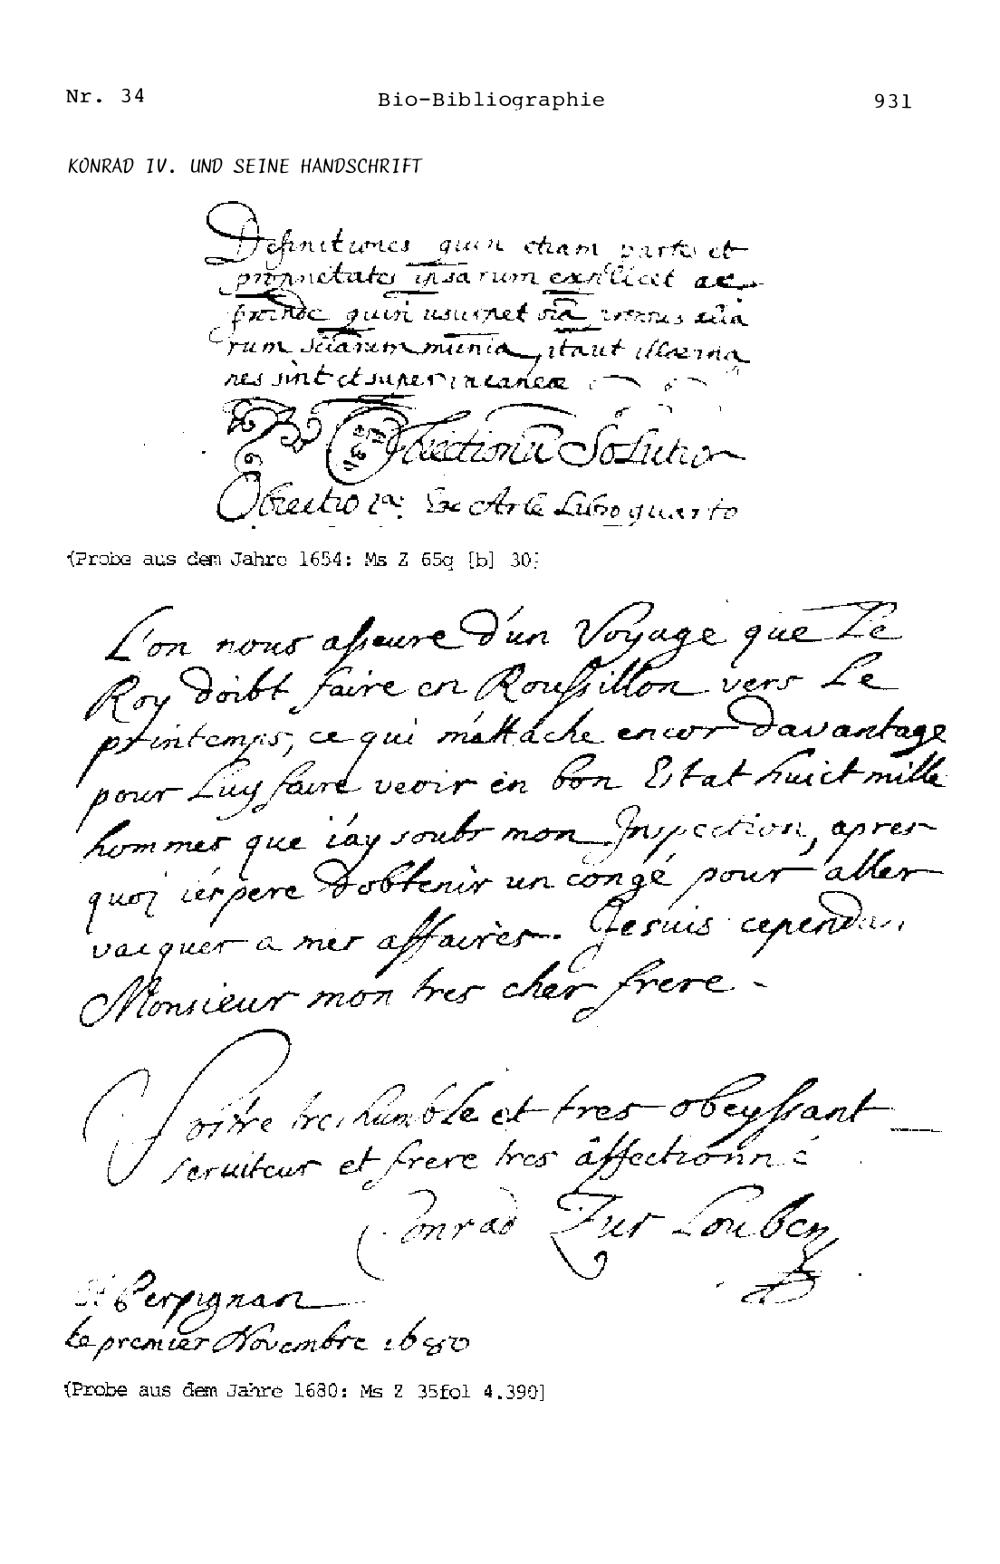 Nr. 34
Bio-Bibliographie
931
KONRAD IV. UND SEINE HANDSCHRIFT
Definitiones quin etiam partes et
proprietates ipsarum explicet ac
proinde quin usurpet oīa
rum sciārum munia, itaut illae ina
nes sint et supervacaneae
Obiectionū Solutio
Obiectio 1a: Ex Arle Libro quarto
{Probe aus dem Jahre 1654: Ms Z 65q [b] 30]
L'on nous asseure d'un Voyage que Le
Roy doibt faire en Roussillon vers Le
printemps, ce qui m'attache encor davantage
pour Luy faire veoir en bon Estat huict mille
hommes que i'ay soubs mon Inspection, apres
quoi i'espere d'obtenir un congé pour aller
vacquer a mes affaires. Je suis cependan
Monsieur mon tres cher frere -
Vostre tres humble et tres obeyssant
serviteur et frere tres affectionné
Conrad Zur Louben
Perpignan
Le premier Novembre 1680
{Probe aus dem Jahre 1680: Ms Z 35fol 4.390]